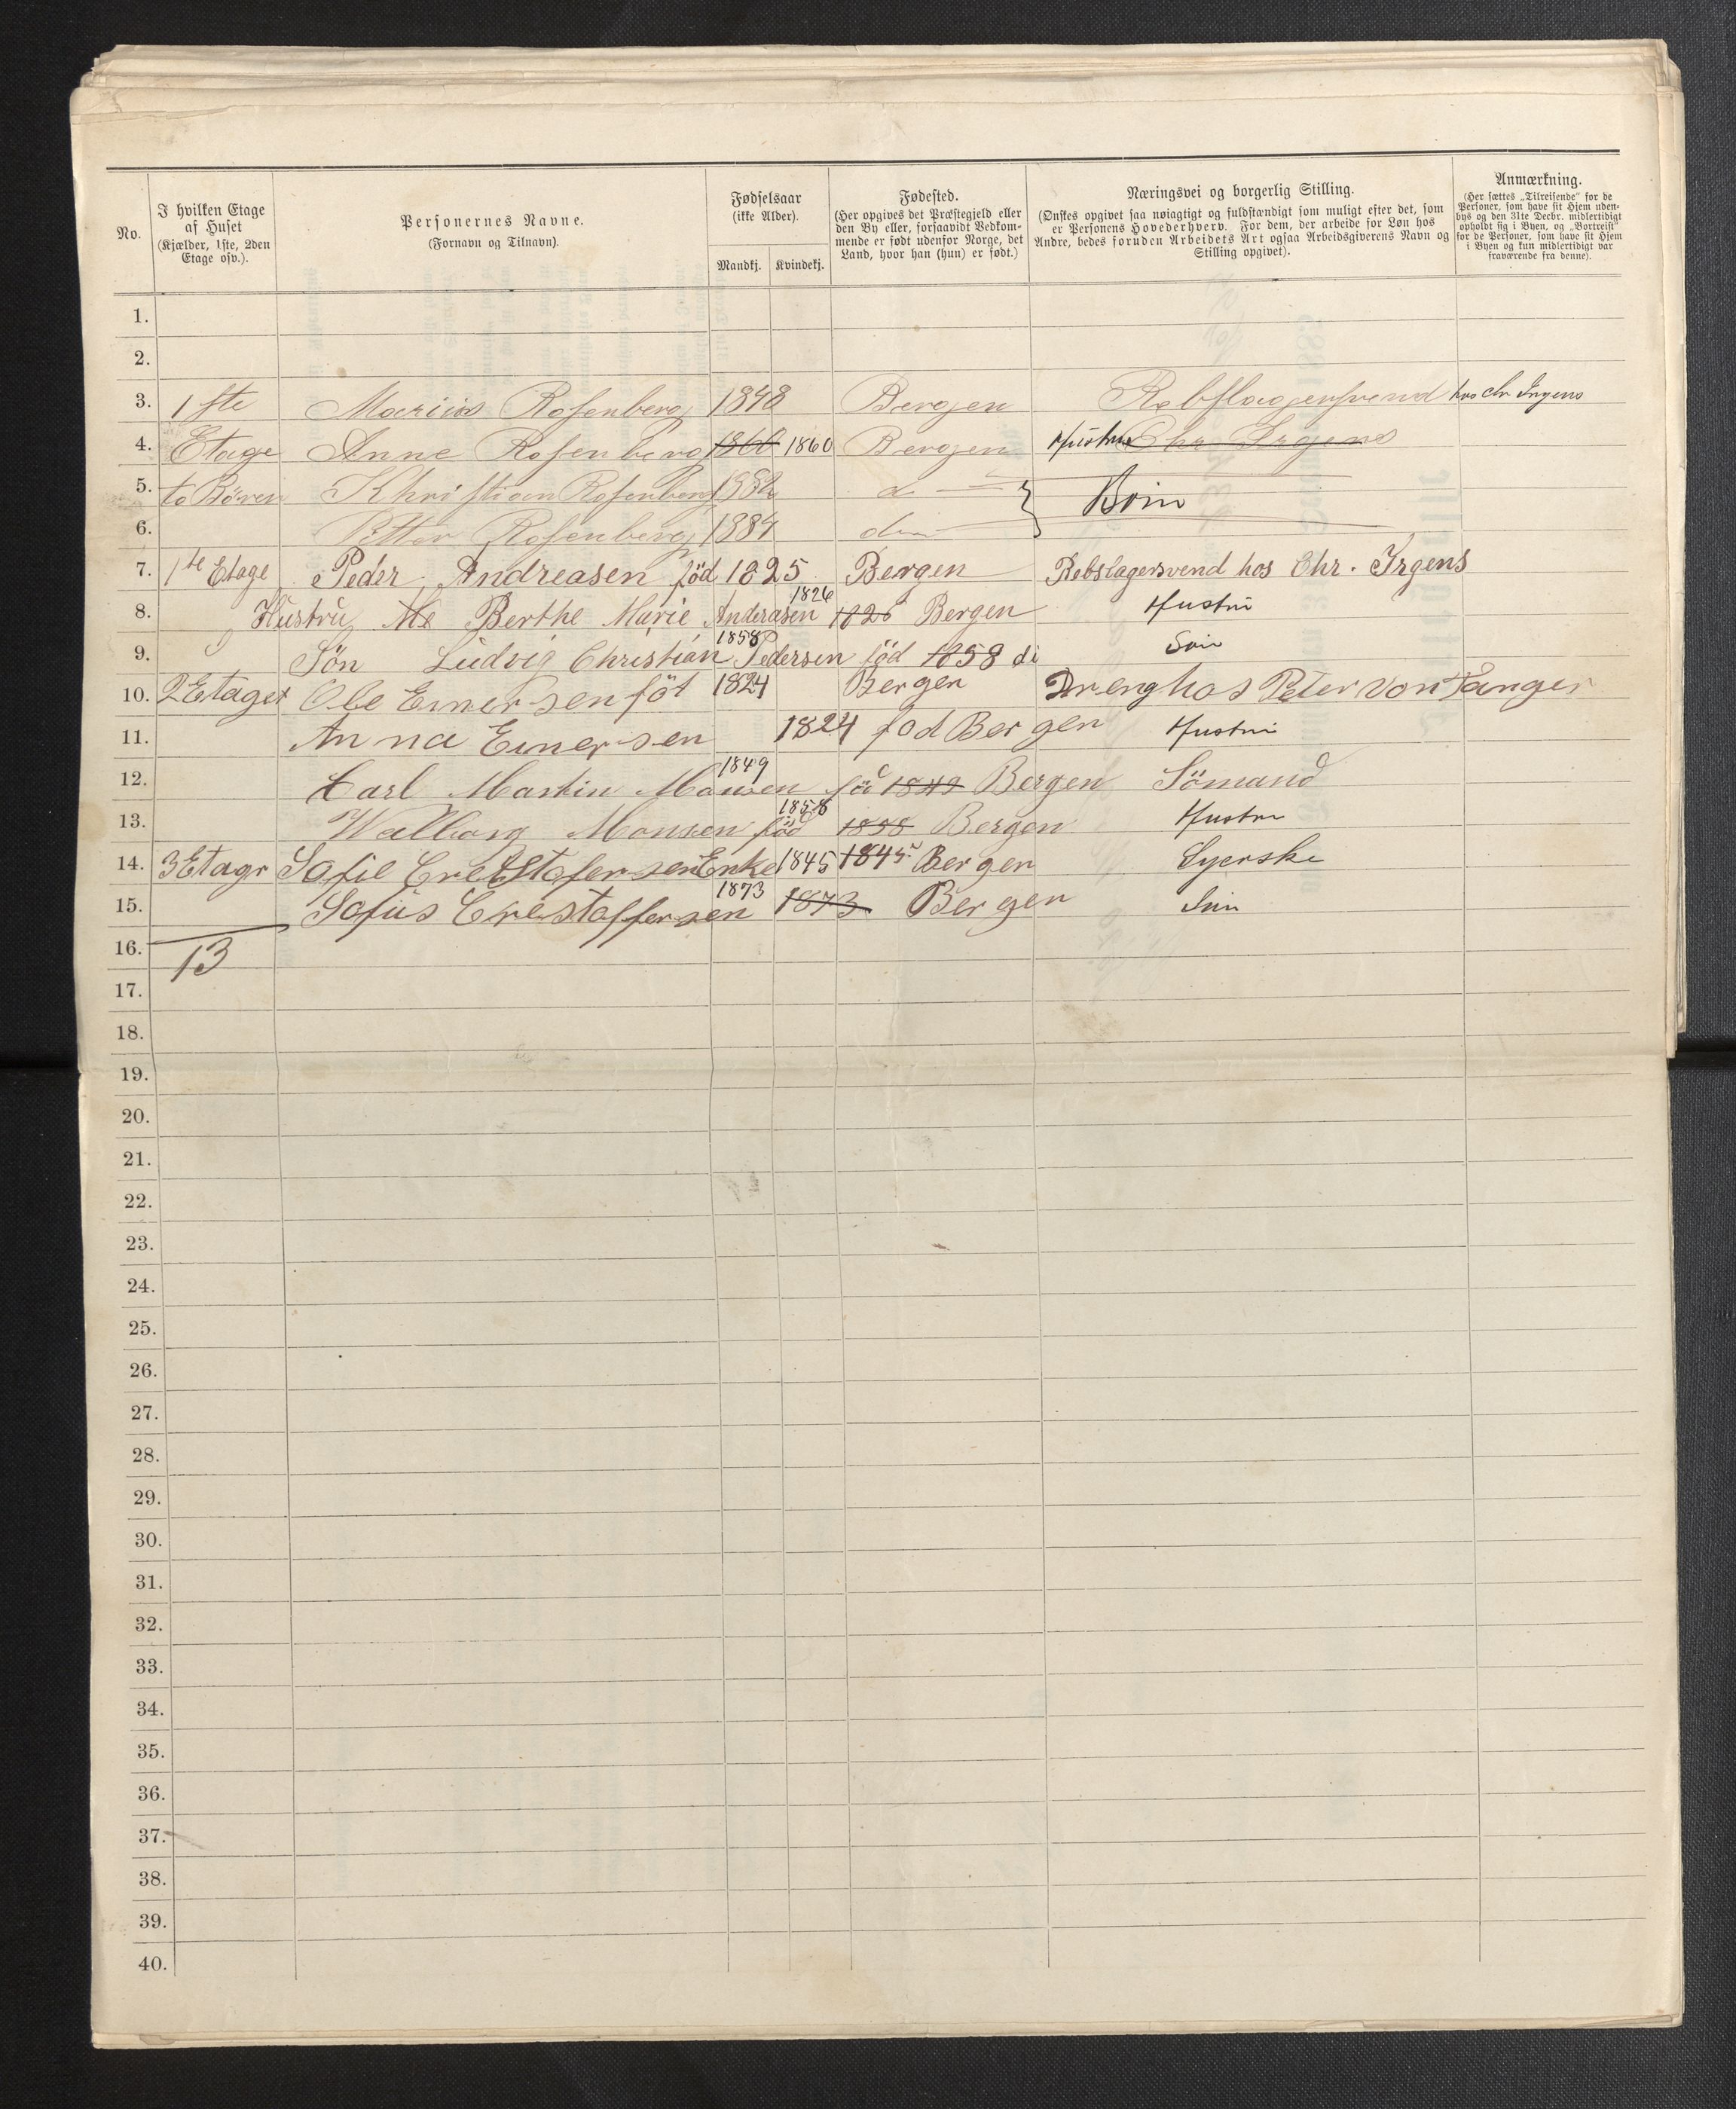 No.
I hvilken Etage
af Huset
(Kjælder, 1ste, 2den
Etage osv.).
Personernes Navne.
(Fornavn og Tilnavn).
Fødselsaar
(ikke Alder).
Mandkj. Kvindekj.
Fødested.
(Her opgives det Præstegjeld eller
den By eller, forsaavidt Vedkom-
mende er født udenfor Norge, det
Land, hvor han (hun) er født.)
Næringsvei og borgerlig Stilling.
(Ønskes opgivet saa nøiagtigt og fuldstændigt som muligt efter det, som
er Personens Hovederhverv. For dem, der arbeide for Løn hos
Andre, bedes foruden Arbeidets Art ogsaa Arbeidsgiverens Navn og
Stilling opgivet).
Anmærkning.
(Her sættes „Tilreisende“ for de
Personer, som have sit Hjem uden-
bys og den 31te Decbr. midlertidigt
opholdt sig i Byen, og „Bortreist“
for de Personer, som have sit Hjem
i Byen og kun midlertidigt var
fraværende fra denne).
1.
2.
3. 1 ste Marius Rosenberg 1848 Bergen Rebslagersvend hos Chr Irgens
4. Etage Anne Rosenberg 1860 1860 Bergen Hustru Chr Irgens
5. to Börn Khristian Rosenberg 1882 Börn
6. Petter Rosenberg 1884
7. 1te Etage Peder Andreasen föd 1825 Bergen Rebslagersvend hos Chr. Irgens
8. Hustru Berthe Marie Anderasen 1826 1826 Bergen Hustru
9. Sön Ludvig Christian Pedersen 1858 föd 1858 di Sön
10. 2 Etaget Ole Einersen föt 1824 Bergen Dreng hos Peter von Tanger
11. Anna Einersen 1824 fod Bergen Hustru
12. Carl Martin Monsen 1849 föd 1849 Bergen Sömand
13. Walborg Monsen föd 1858 1858 Bergen Hustru
14. 3 Etagr Sofie Crestofersen Enke 1845 1845 Bergen Syerske
15. Sofus Crestoffersen 1873 1873 Bergen Sön
16. 13
17.
18.
19.
20.
21.
22.
23.
24.
25.
26.
27.
28.
29.
30.
31.
32.
33.
34.
35.
36.
37.
38.
39.
40.